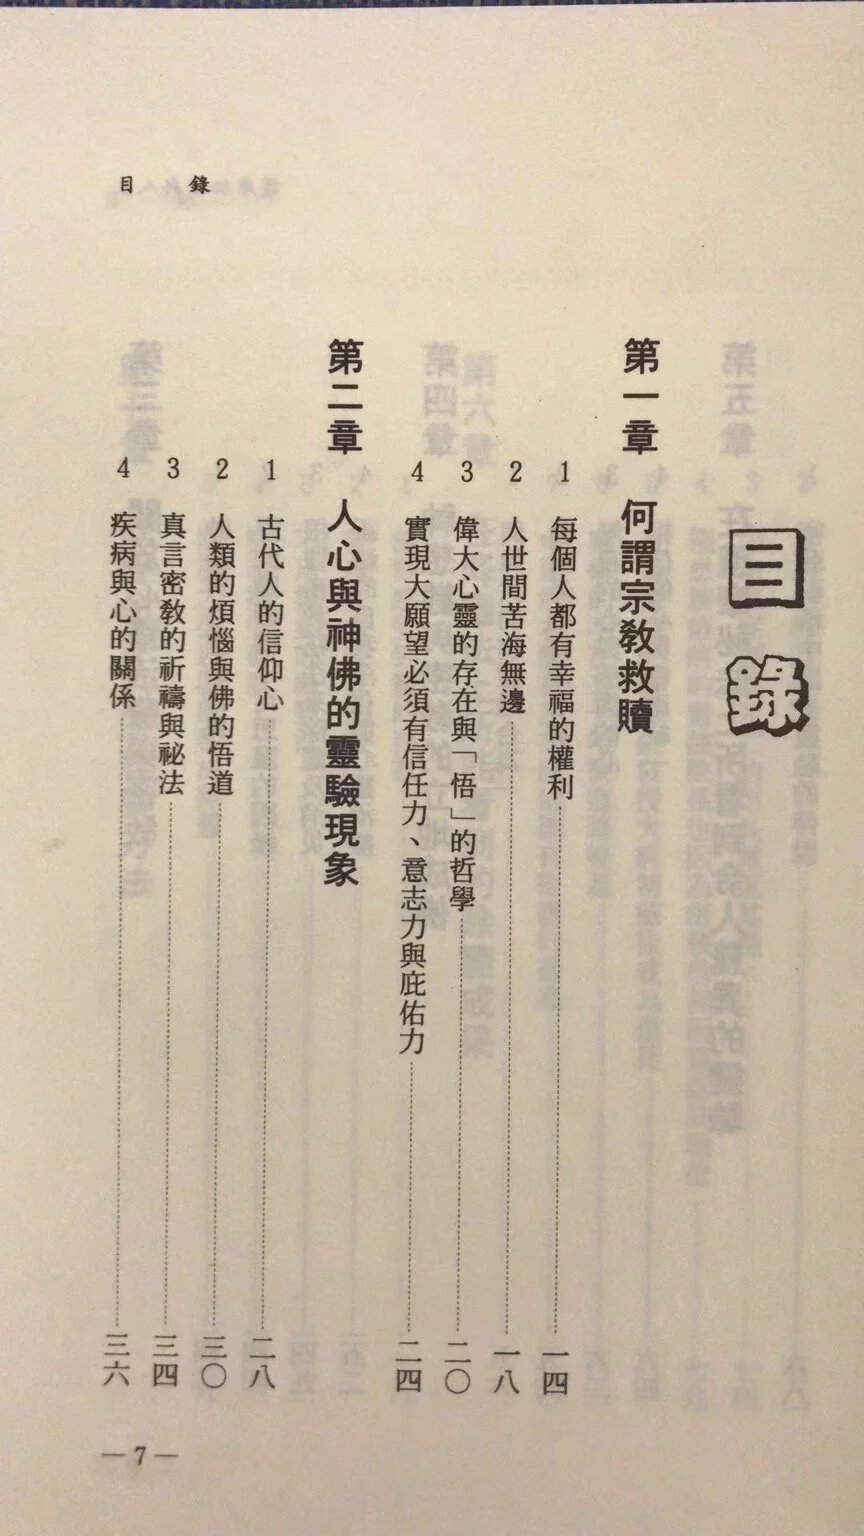 目　錄
目錄
第一章　何謂宗教救贖
1　每個人都有幸福的權利………一四
2　人世間苦海無邊………一八
3　偉大心靈的存在與「悟」的哲學………二〇
4　實現大願望必須有信任力、意志力與庇佑力………二四
第二章　人心與神佛的靈驗現象
1　古代人的信仰心………二八
2　人類的煩惱與佛的悟道………三〇
3　真言密教的祈禱與祕法………三四
4　疾病與心的關係………三六
— 7 —